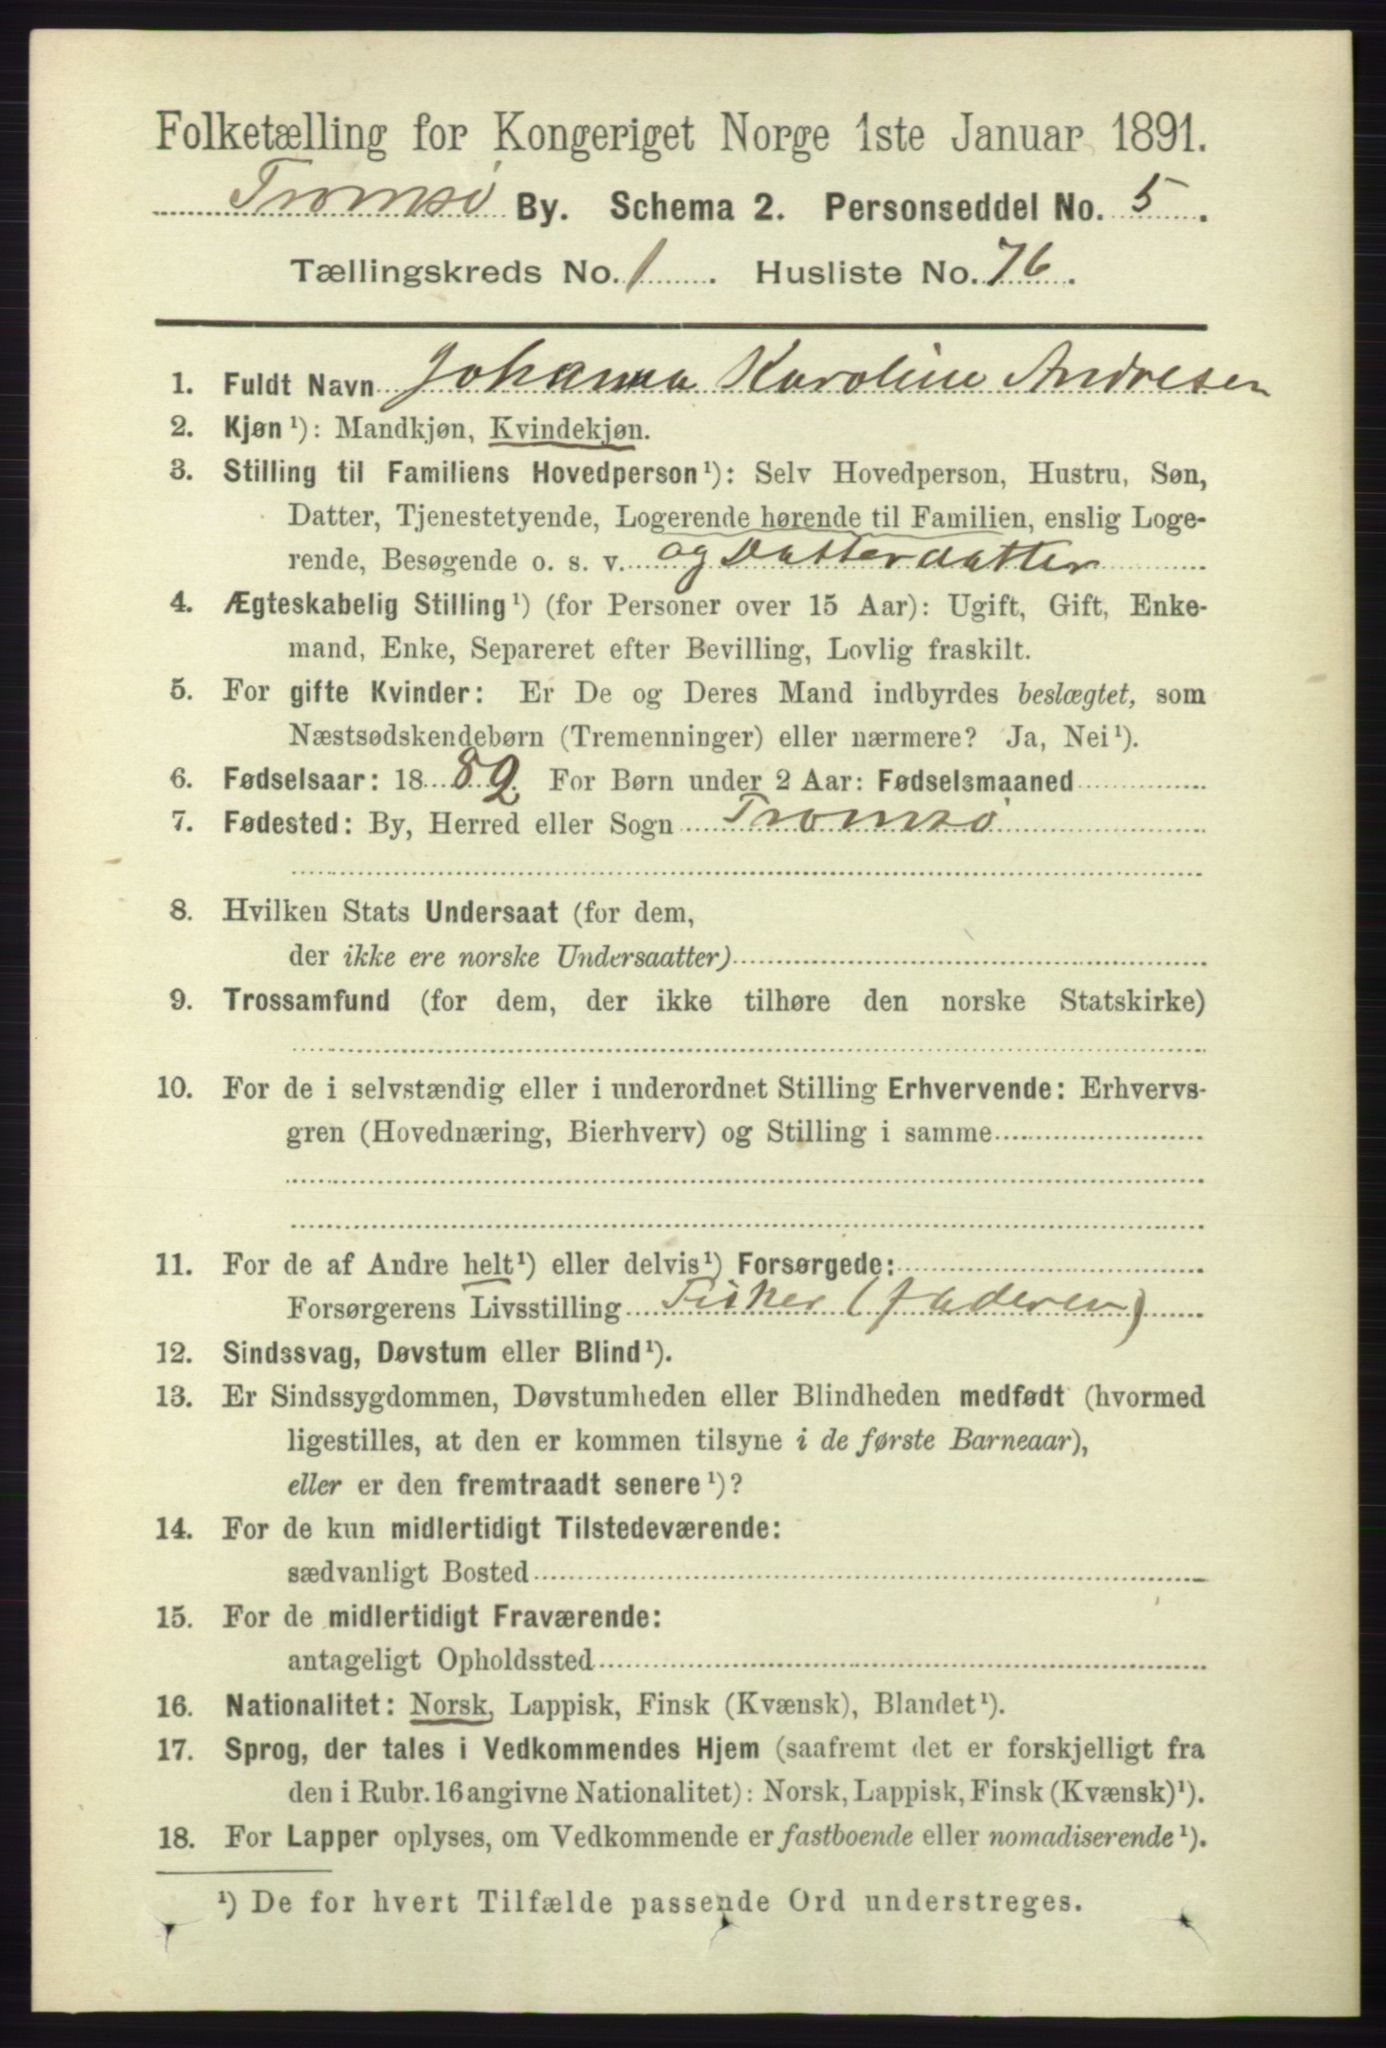 Folketælling for Kongeriget Norge 1ste Januar 1891.
Tromsø By. Schema 2. Personseddel No. 5.
Tællingskreds No. 1. Husliste No. 76.
1. Fuldt Navn Johanna Karoline Andresen
2. Kjøn¹): Mandkjøn, Kvindekjøn.
3. Stilling til Familiens Hovedperson¹): Selv Hovedperson, Hustru, Søn,
Datter, Tjenestetyende, Logerende hørende til Familien, enslig Loge-
rende, Besøgende o. s. v. og Datterdatter
4. Ægteskabelig Stilling¹) (for Personer over 15 Aar): Ugift, Gift, Enke-
mand, Enke, Separeret efter Bevilling, Lovlig fraskilt.
5. For gifte Kvinder: Er De og Deres Mand indbyrdes beslægtet, som
Næstsødskendebørn (Tremenninger) eller nærmere? Ja, Nei¹).
6. Fødselsaar: 1889. For Børn under 2 Aar: Fødselsmaaned
7. Fødested: By, Herred eller Sogn Tromsø
8. Hvilken Stats Undersaat (for dem,
der ikke ere norske Undersaatter)
9. Trossamfund (for dem, der ikke tilhøre den norske Statskirke)
10. For de i selvstændig eller i underordnet Stilling Erhvervende: Erhvervs-
gren (Hovednæring, Bierhverv) og Stilling i samme
11. For de af Andre helt¹) eller delvis¹) Forsørgede:
Forsørgerens Livsstilling Fisker (faderen)
12. Sindssvag, Døvstum eller Blind¹).
13. Er Sindssygdommen, Døvstumheden eller Blindheden medfødt (hvormed
ligestilles, at den er kommen tilsyne i de første Barneaar),
eller er den fremtraadt senere¹)?
14. For de kun midlertidigt Tilstedeværende:
sædvanligt Bosted
15. For de midlertidigt Fraværende:
antageligt Opholdssted
16. Nationalitet: Norsk, Lappisk, Finsk (Kvænsk), Blandet¹).
17. Sprog, der tales i Vedkommendes Hjem (saafremt det er forskjelligt fra
den i Rubr. 16 angivne Nationalitet): Norsk, Lappisk, Finsk (Kvænsk)¹).
18. For Lapper oplyses, om Vedkommende er fastboende eller nomadiserende¹).
¹) De for hvert Tilfælde passende Ord understreges.